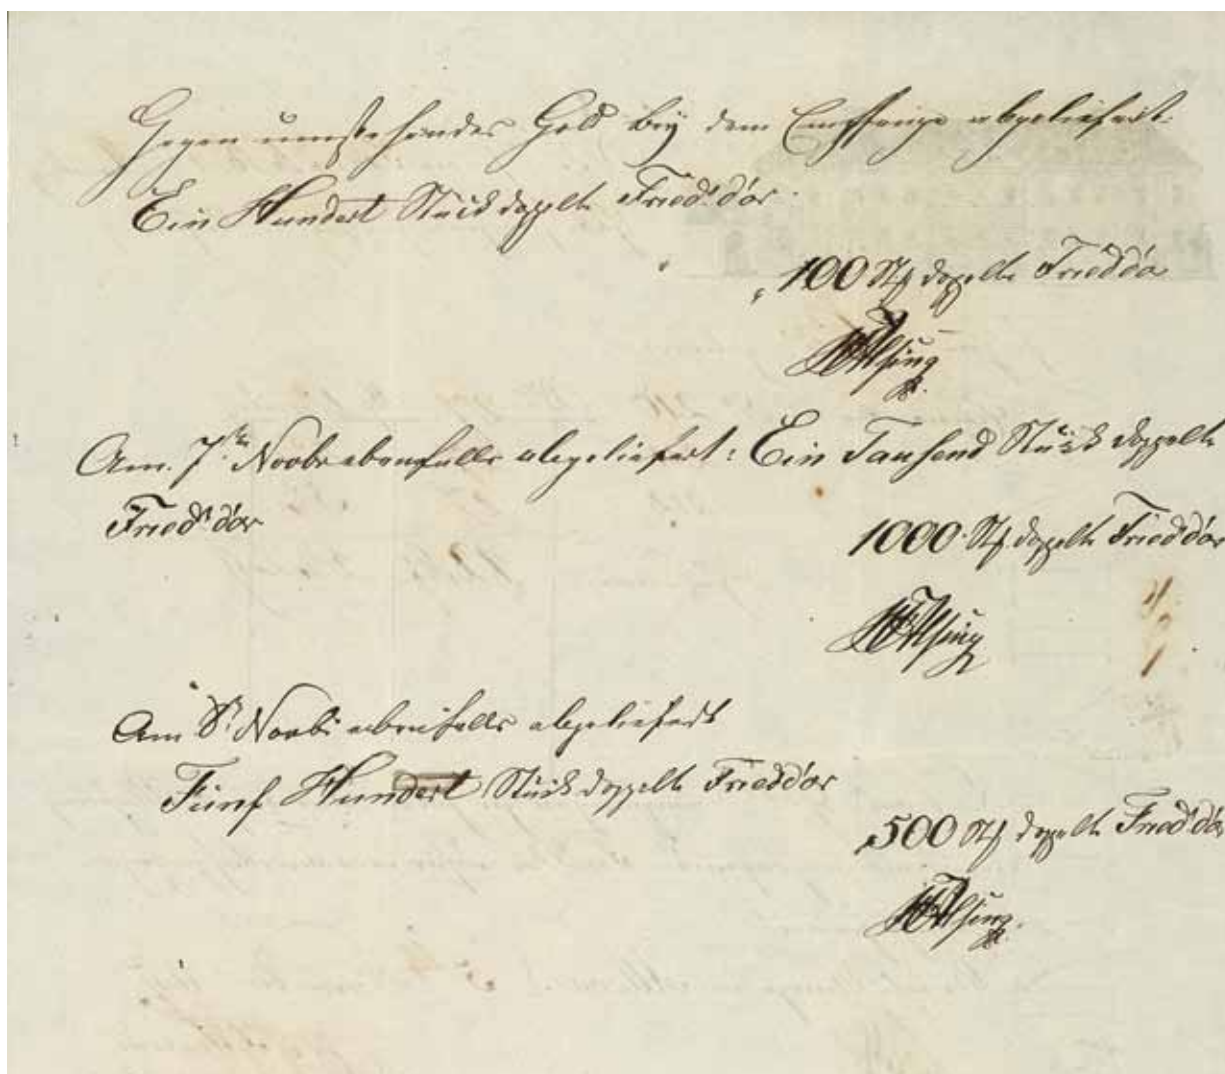 Gegen umstehendes Gold bey dem Empfange abgeliefert.
Ein Hundert Stück doppelte Fried'dor.
100 Stf doppelte Fried'dor
Am 7ten Novbr ebenfalls abgeliefert: Ein Tausend Stück doppelte
Fried'dor
1000 Stf doppelte Fried'dor
Am 8t Novbr ebenfalls abgeliefert
Fünf Hundert Stück doppelte Fried'dor
500 Stf doppelte Fried'dor